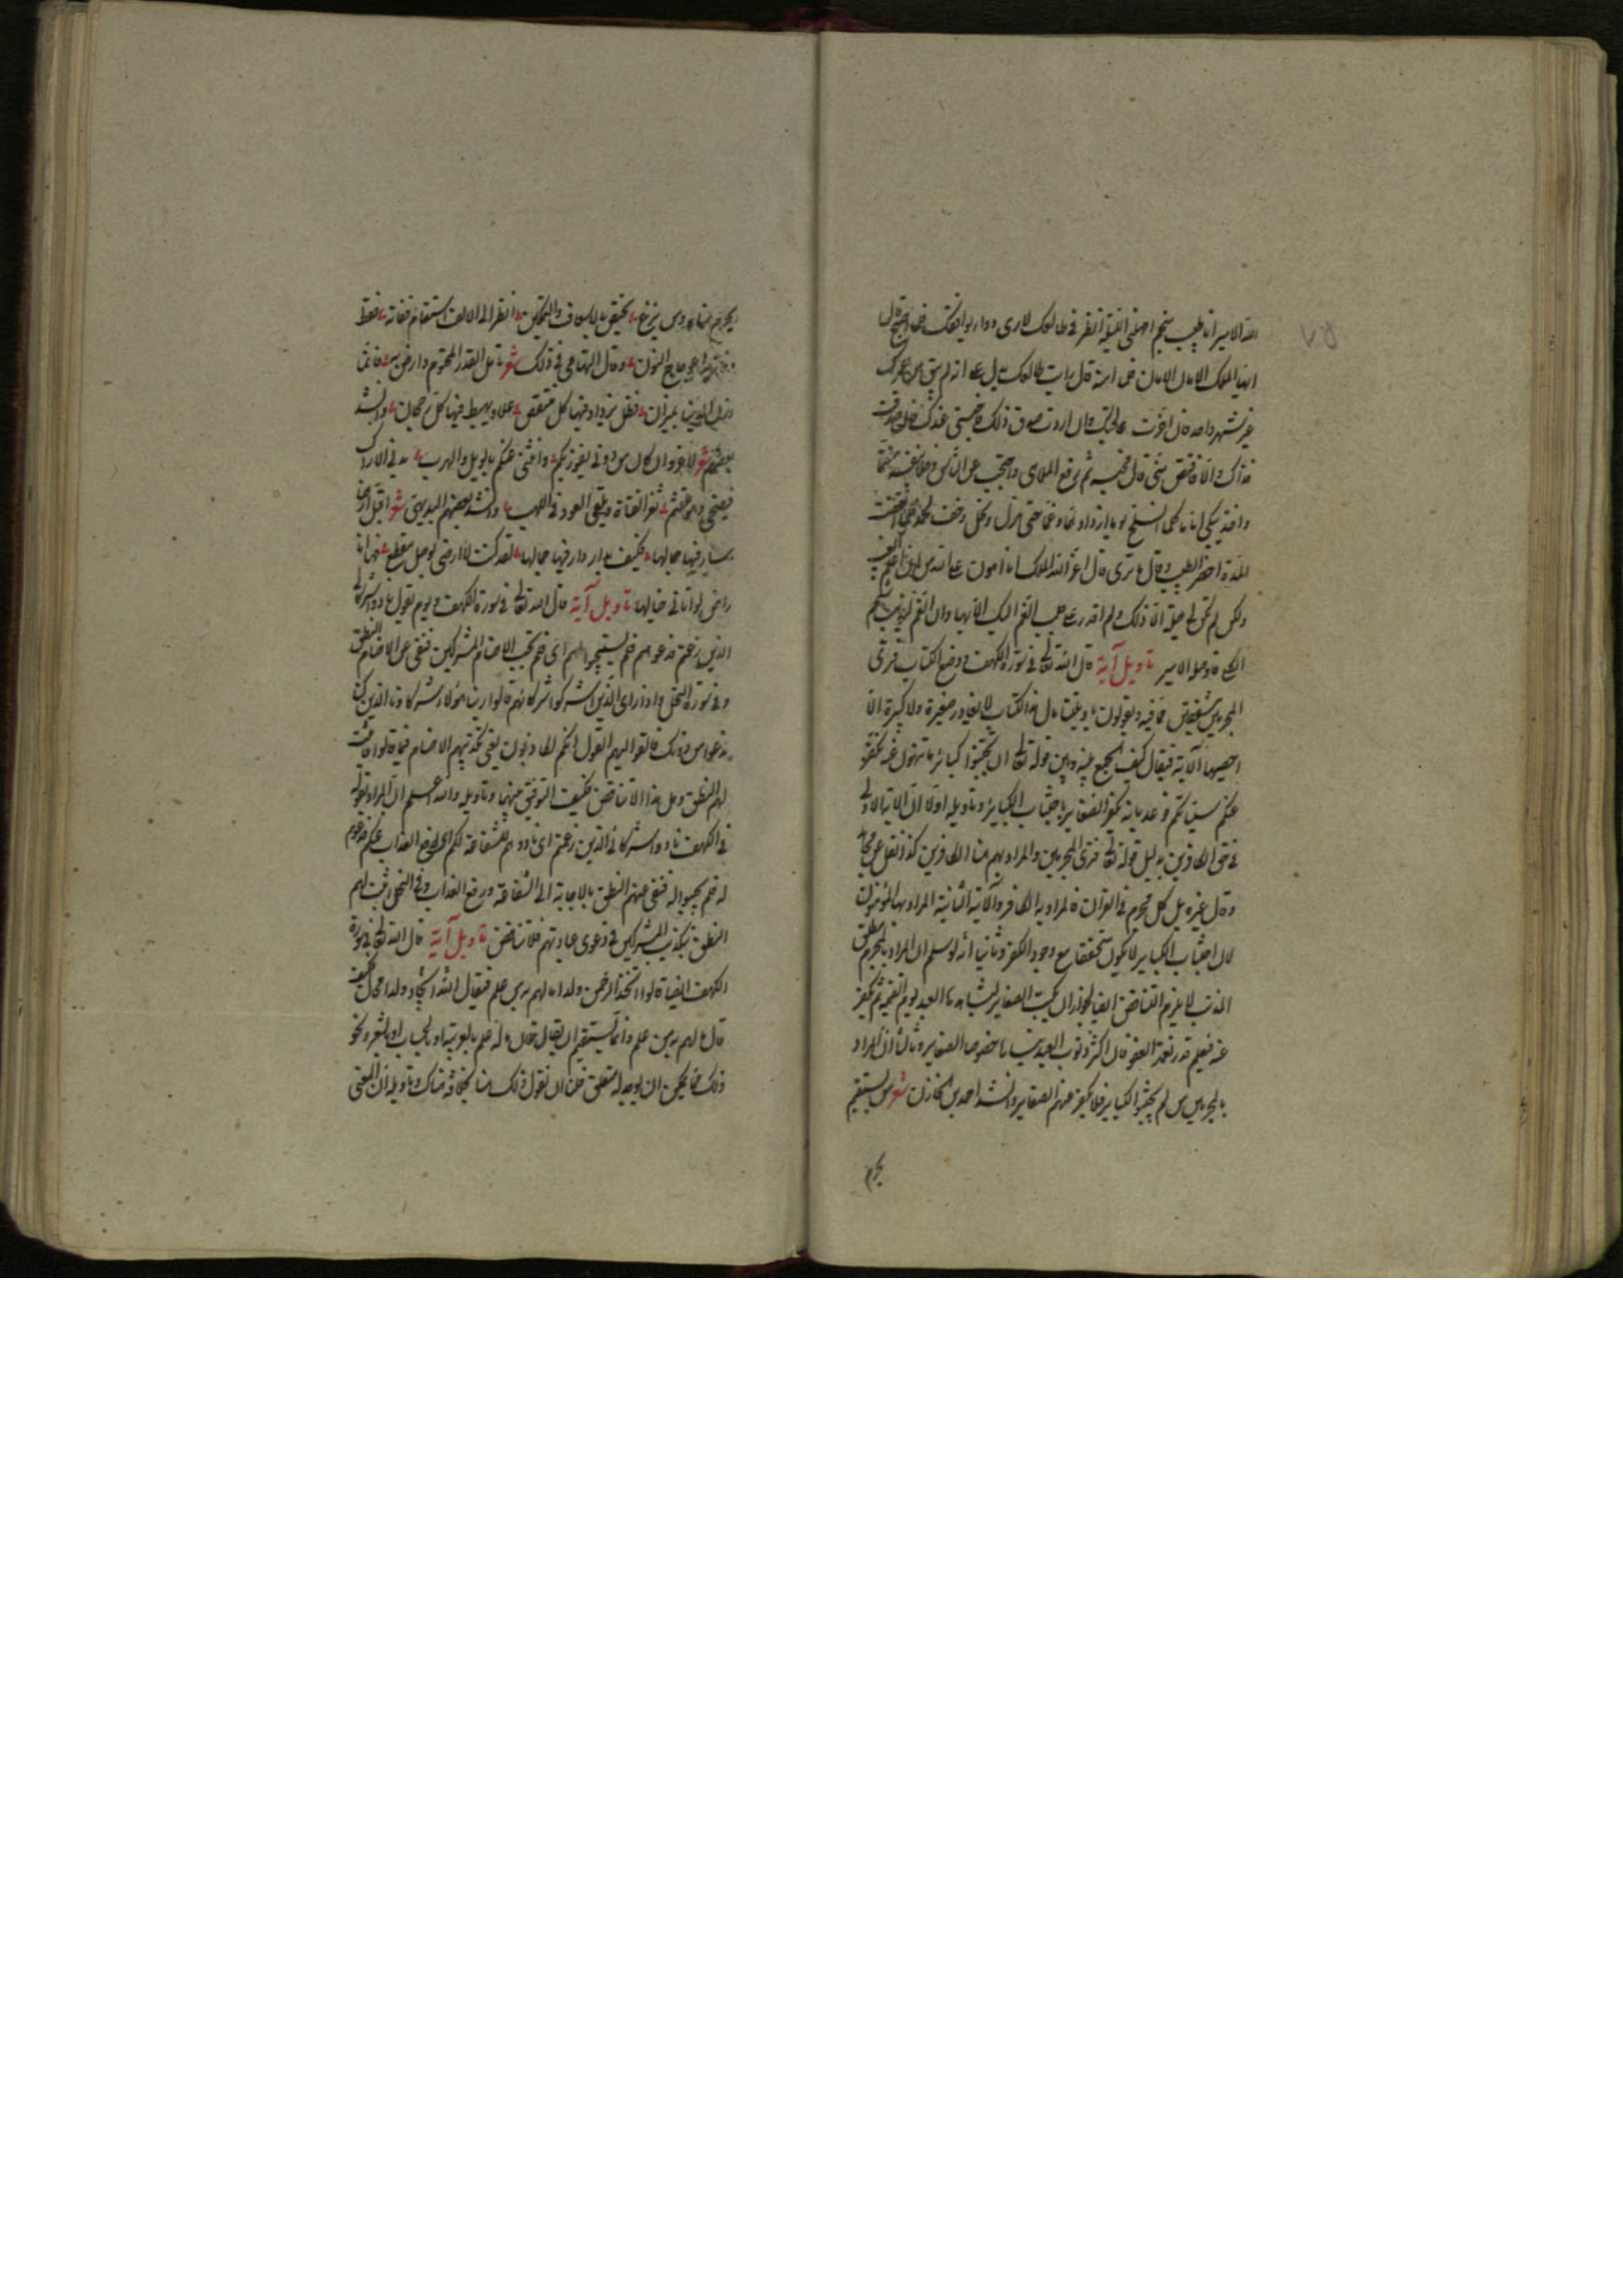 ٧٥
الله الامير انا طبيب منجم اصلحنى الليلة انظر فى طالعك لارى دواء يوافقك فلما اصبح قال
ايها الملك الامان الامان فلما امنه قال رايت طالعك يدل على انه لم يبق من عمرك
غير شهر واحد فان اخترت عالجتك وان اردت صدق ذلك فاحبسنى عندك فان صدقت
فذاك والا فاقتص منى قال فحبسه ثم رفع الملاهى واحتجب عن الناس وخلا بنفسه مغتما
لحمه
المدة احضر الطبيب وقال ما ترى قال اعز الله الملك انا اهون على الله من ان اعلم الغيب
ولكن لم تكن لى حيلة الا ذلك ولم اقدر على جلب الغم اليك الا بها وان الغم يذيب شحم
الكلى فاوصله الامير تاويل آية قال الله تعالى فى سورة الكهف ووضع الكتاب فترى
المجرمين مشفقين مما فيه ويقولون يا ويلتنا مال هذا الكتاب لا يغادر صغيرة ولا كبيرة الا
احصيها الآية فيقال كيف الجمع بينه وبين قوله تعالى ان تجتنبوا كبائر ما تنهون عنه نكفر
عنكم سيئاتكم وعد بانه يكفر الصغاير باجتناب الكبائر وتاويله اولا ان الآية الاولى
فى حق الكافرين بدليل قوله تعالى فترى المجرمين والمراد بهم هنا الكافرين كذا نقل عن مجاهد
وقال غيره بل كل مجرم فى القران فالمراد به الكافر والآية الثانية المراد بها المؤمنون
لان اجتناب الكبائر لا يكون متحققا مع وجود الكفر وثانيا انه لو سلم ان المراد بالمجرم مطلق
المذنب لا يلزم التناقض ايضا لجواز ان يكتب الصغاير ليشاهدها العبد يوم القيمة ثم يكفر
عنه فيعلم قدر نعمة العفو فان اكثر ذنوب العبد ينساها خصوصا الصغاير وثالثا ان المراد
بالمجرمين من لم يجتنبوا الكباير فلا يكفر عنهم الصغاير وانشد احمد بن الخازن شعر من يستقم
يحرم
يحرم مناه ومن يزغ يختص بالاسعاف والتمكين انظر الى الالف استقام ففاته نقط
وفاز به اعوجاج النون وقال التهامى فى ذلك شعر تامل القدر المحتوم وارض به فانما
فظل يزداد فيها كل منتقص علا ويهبط فيها كل رجحان وانشد
بعضهم شعر لا غرو ان كان من دونى يفوز بكم وانثنى عنكم بالويل والهرب يدنى الاراك
فيضحى وهو ملتثم ثغر الفتاة ويلقى العود فى اللهب وانشد بعضهم البديهى شعر
لقد كنت لا ارضى بوصل مقطع فها انا
راض لو اتانى خيالها تاويل آية قال الله تعالى فى سورة الكهف ويوم يقول نادوا شركائى
الذين زعمتم فدعوهم فلم يستجيبوا لهم اى فلم تجب الاصنام للمشركين فنفى عن الاصنام النطق
وفى سورة النحل واذا راى الذين اشركوا شركائهم قالوا ربنا هؤلاء شركاؤنا الذين كنا
ندعوا من دونك فالقوا اليهم القول انكم لكاذبون يعنى تكذبهم الاصنام فيما قالوا فاثبت
لهم النطق وهل هذا الا تناقض فكيف التوفيق بينهما وتاويله والله اعلم ان المراد بقوله
فى الكهف نادوا شركائى الذين زعمتم اى نادوهم للشفاعة لكم او لدفع العذاب عنكم فدعوهم
له فلم يجيبوا له فنفى عنهم النطق بالاجابة الى الشفاعة ودفع العذاب وفى النحل اثبت لهم
النطق بتكذيب المشركين فى دعوى عبادتهم فلا تناقض تاويل آية قال الله تعالى فى سورة
الكهف ايضا قالوا اتخذ الرحمن ولدا ما لهم به من علم فيقال ان اتخاذ الله ولدا محال فكيف
قال ما لهم به من علم وانما يستقيم ان يقال فلان ماله علم بالعربية او بالحساب او بالشعر ونحو
ذلك مما يمكن ان يوجد له متعلق فلنا ان نقول ذلك هنا كما فى هناك وتاويله ان المعنى